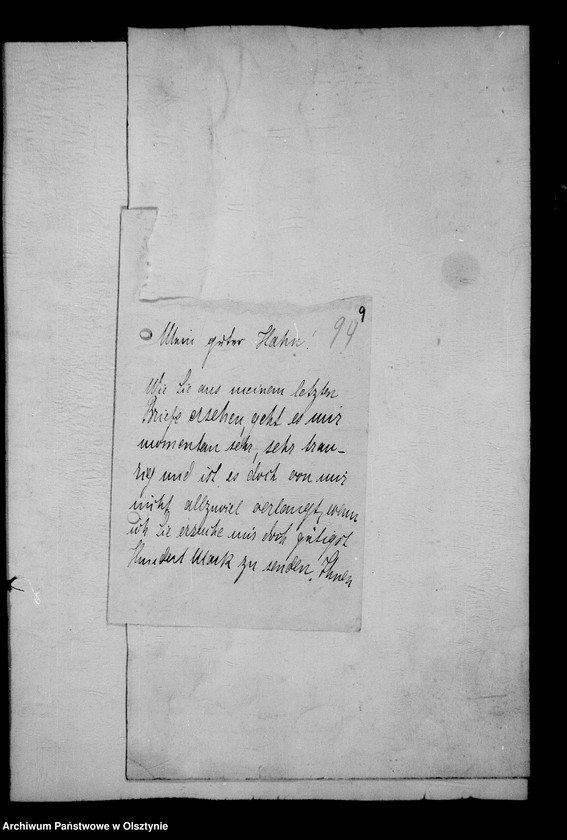 9
94
Mein guter Hahn!
Wie Sie aus meinem letzten
Briefe ersehen, geht es mir
momentan sehr, sehr trau-
rig und ist es doch von mir
nicht allzuviel verlangt, wenn
ich Sie ersuche mir doch gütigst
Hundert Mark zu senden. Ihnen
Archiwum Państwowe w Olsztynie